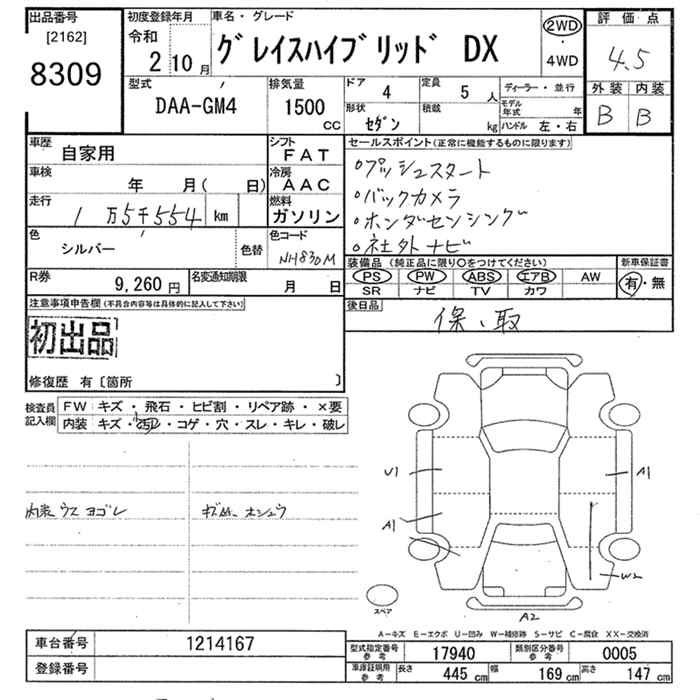 出品番号
[2162]
8309
初度登録年月
令和
2 10 月
車名・グレード
グレイスハイブリッド DX
2WD
・
4WD
評価点
4.5
外装 内装
B B
型式
DAA-GM4
排気量
1500
CC
ドア
4
定員
5 人
形状
セダン
積載
kg
ディーラー・並行
モデル年式 年
ハンドル 左・右
車歴
自家用
シフト
FAT
車検
年 月( 日)
冷房
AAC
走行
1万5千554 km
燃料
ガソリン
色
シルバー
色替
色コード
NH830M
R券
9,260 円
名変通知期限
月 日
セールスポイント(正常に機能するものに限ります)
○プッシュスタート
○バックカメラ
○ホンダセンシング
○社外ナビ
装備品(純正品に限り○をつけてください)
PS PW ABS エアB AW
SR ナビ TV カワ
新車保証書
有・無
後日品
保、取
注意事項申告欄(不具合内容等は具体的に記入して下さい)
初出品
修復歴 有〔箇所 〕
検査員
記入欄
FW キズ・飛石・ヒビ割・リペア跡・×要
内装 キズ・汚レ・コゲ・穴・スレ・キレ・破レ
内装ウスヨゴレ
U1
A1
A1
W2
A2
スペア
A-キズ E-エクボ U-凹み W-補修跡 S-サビ C-腐食 XX-交換済
車台番号
1214167
登録番号
型式指定番号
参考
17940
類別区分番号
参考
0005
車庫証明用
参考
長さ 445 cm 幅 169 cm 高さ 147 cm